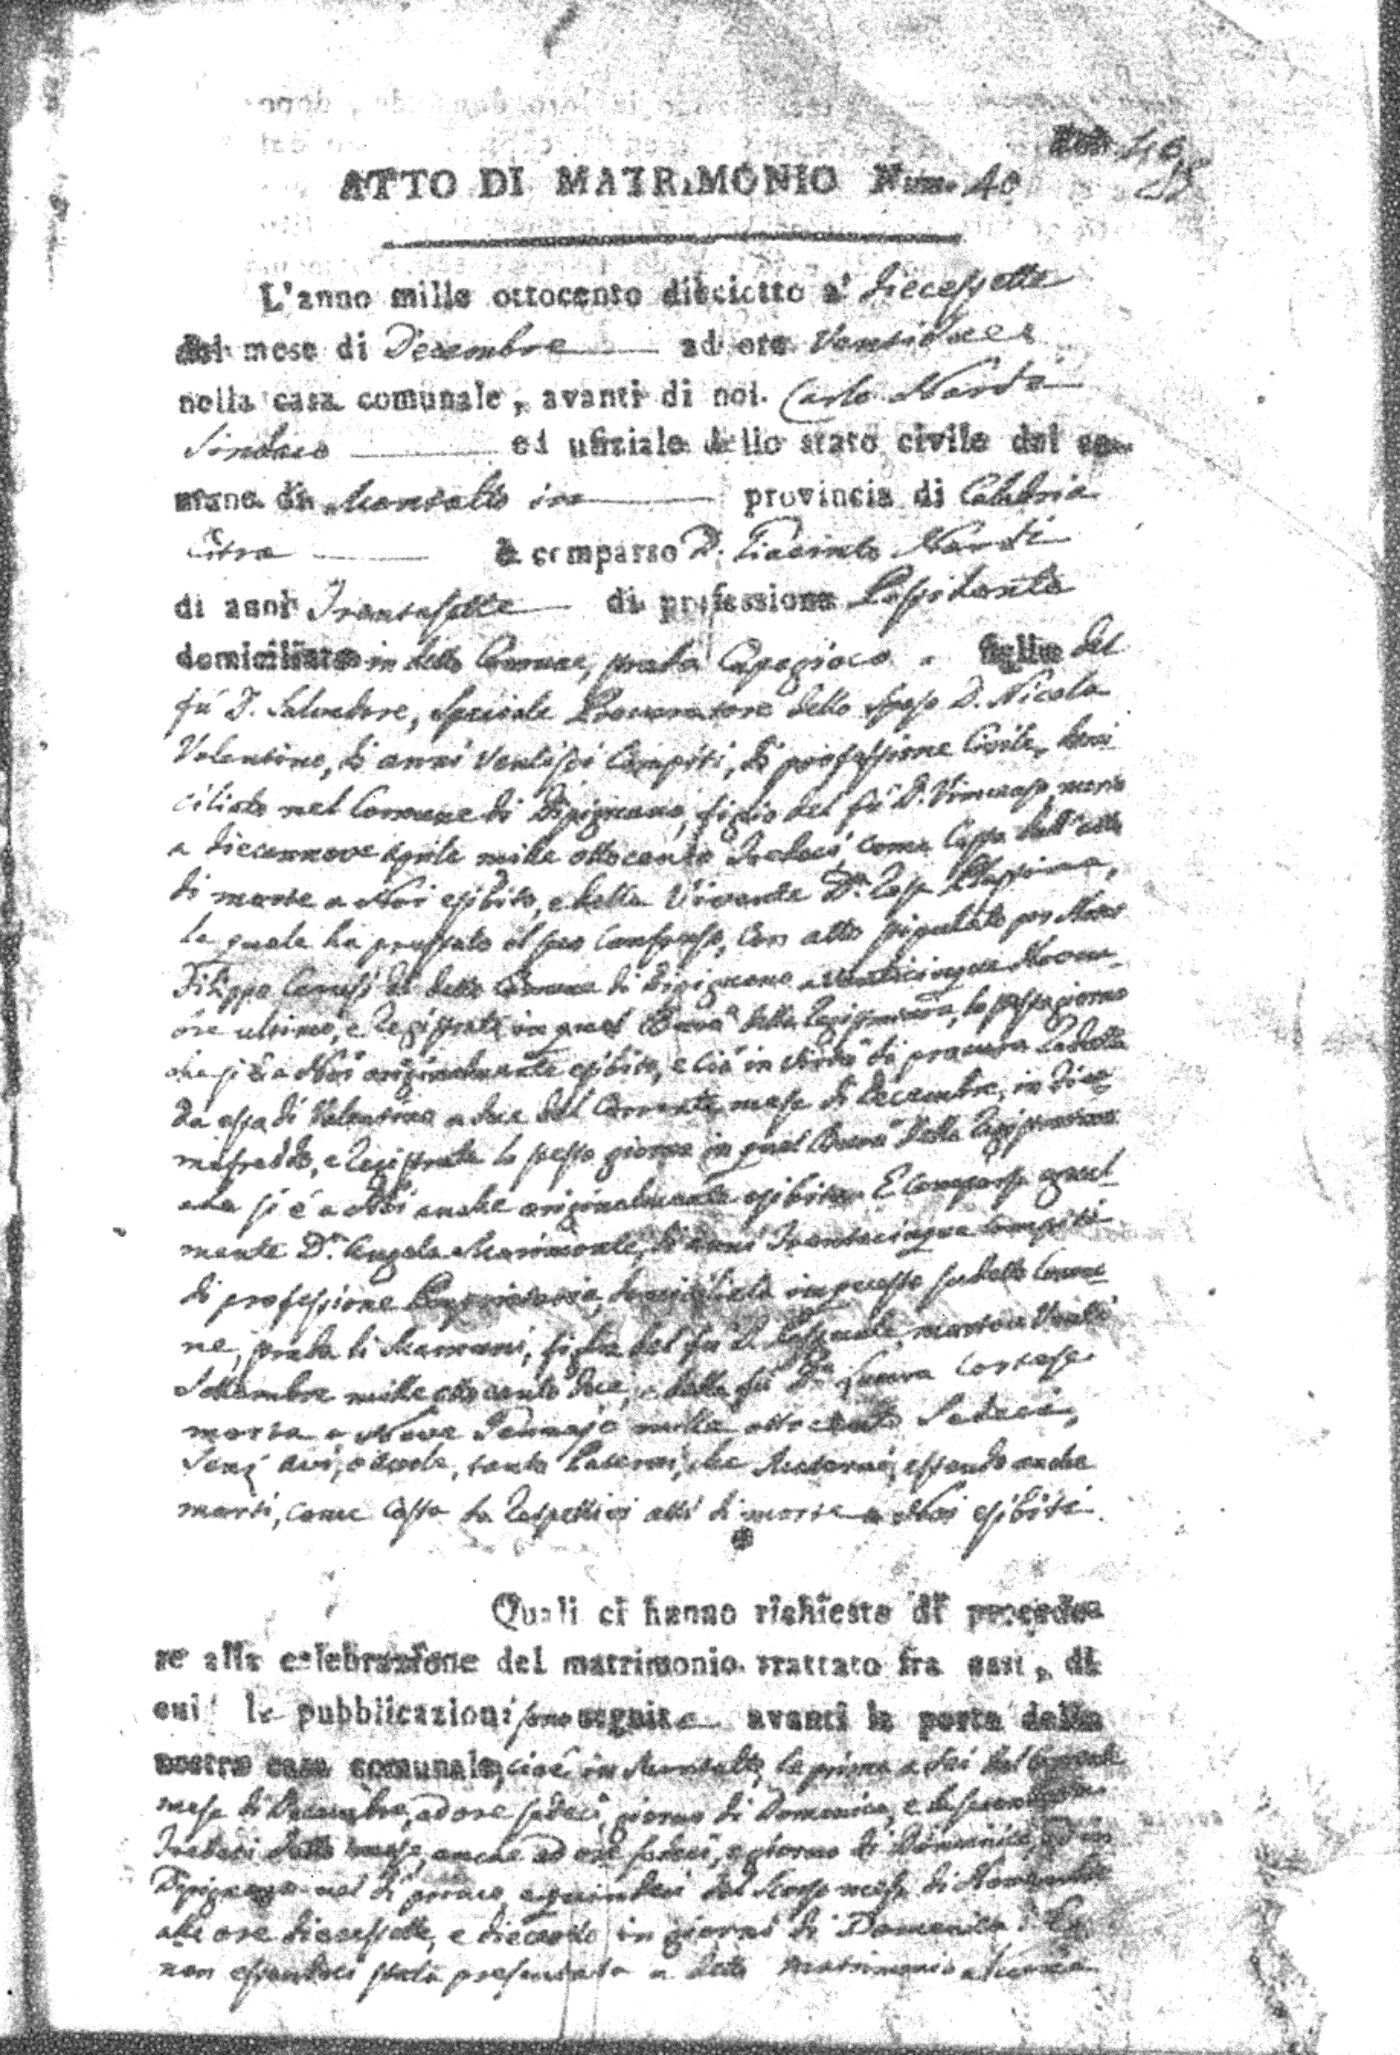 ATTO DI MATRIMONIO Num. 40
L'anno mille ottocento dieciotto a' diecessette
del mese di Decembre ad ore Ventidue
nella casa comunale, avanti di noi Carlo Nardi
Sindaco ed ufiziale dello stato civile del co-
mune di Montalto provincia di Calabria
Citra è comparso D. Giacinto Nardi
di anni Trentasette di professione Possidente
domiciliato in detto Comune, strada Capogioco figlio del
fù D. Salvadore, speciale Procuratore dello sposo D. Nicola
Valentino, di anni ventisei compiti, di professione Civile, domi
ciliato nel Comune di Dipignano, figlio del fù D. morto
a diecennove Aprile mille ottocento tredeci, come costa dall'atto
di morte a Noi esibito, e della vivente D.ª Rosa
la quale ha prestato il suo consenso, con atto stipulato per Notar
Filippo di detto Comune di Dipignano a venticinque Novem-
bre ultimo, e registrato in quel Burò della registratura, lo stesso giorno
che si è a Noi originalmente esibito, e ciò in virtù di procura
da esso di Valentino a due del corrente mese di Decembre, in
e registrata lo stesso giorno in quel Burò della registratura
che si è a Noi anche originalmente esibita. E comparsa egual-
mente D.ª Angela di anni Trentacinque compiti
di professione Proprietaria, domiciliata in questo sudetto Comu-
ne, strada li figlia del fù D. Pasquale, morto a Venti
Settembre mille ottocento dece, e della fù D.ª Laura Cortese
morta a Nove Gennajo mille ottocento Sedeci,
Senz' avi, o avole, tanto Paterni, che Materni, essendo anche
morti, come costa da respettivi atti di morte a Noi esibiti.
Quali ci hanno richiesto di procede-
re alla celebrazione del matrimonio trattato fra essi, di
cui le pubblicazioni sono seguite avanti la porta della
nostra casa comunale, cioè in Montalto, la prima a sei del corrente
mese di Decembre, ad ore sedeci, giorno di Domenica, e la seconda
Tredeci detto mese, anche ad ore sedeci, e giorno di Domenica, ed in
Dipignano nel dì primo, e quindeci del scorso mese di Novembre
alle ore diecessette, e dieciotto in giorni di Domenica. E
non essendoci stata presentata a detto matrimonio alcuna